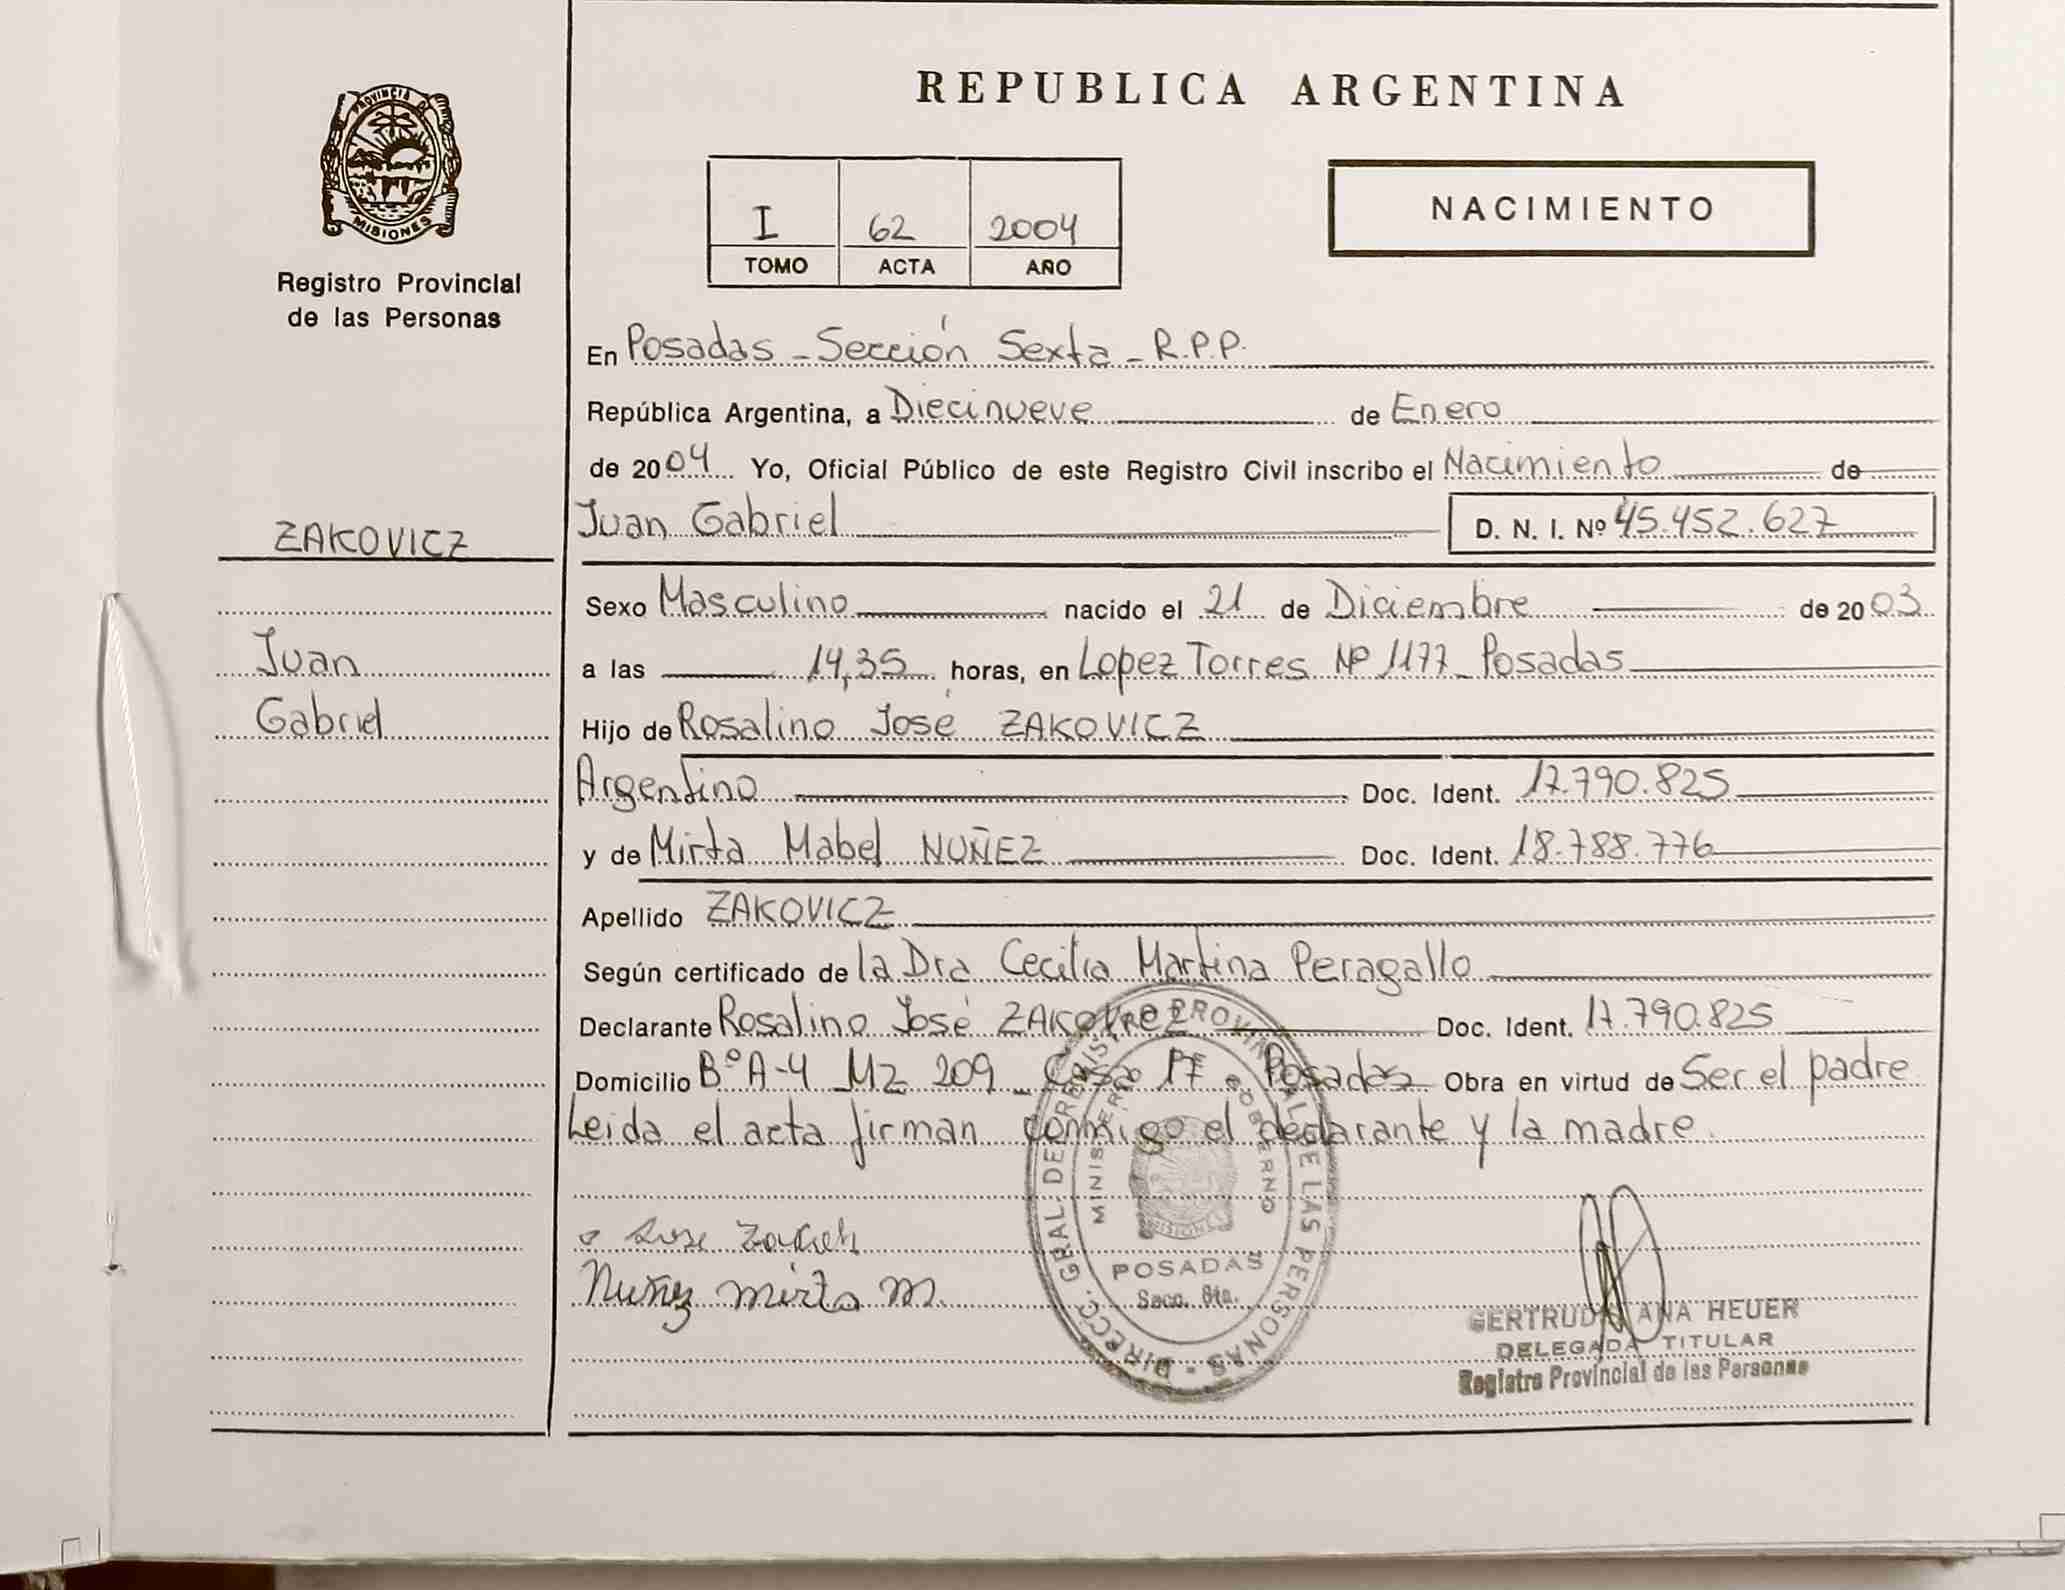 REPUBLICA ARGENTINA
PROVINCIA DE
MISIONES
Registro Provincial
de las Personas
I 62 2004
TOMO ACTA AÑO
NACIMIENTO
En Posadas - Sección Sexta - R.P.P.
República Argentina, a Diecinueve de Enero
de 2004 Yo, Oficial Público de este Registro Civil inscribo el Nacimiento de
ZAKOVICZ
Juan Gabriel D. N. I. Nº 45.452.627
Sexo Masculino nacido el 21 de Diciembre de 2003
Juan
a las 14,35 horas, en Lopez Torres Nº 1177 - Posadas
Gabriel
Hijo de Rosalino José ZAKOVICZ
Argentino Doc. Ident. 17.790.825
y de Mirta Mabel NUÑEZ Doc. Ident. 18.788.776
Apellido ZAKOVICZ
Según certificado de la Dra Cecilia Martina Peragallo
Declarante Rosalino José Doc. Ident. 17.790.825
Domicilio Bº A-4 Mz 209 - Casa Posadas Obra en virtud de Ser el padre
Leida el acta firman conmigo el declarante y la madre.
Nuñez Mirta M.
DIRECC. GRAL. DE REGISTRO PROVINCIAL DE LAS PERSONAS
MINISTERIO GOBIERNO
MISIONES
POSADAS
Secc. 6ta.
ANA HEUER
DELEGADA TITULAR
Registro Provincial de las Personas